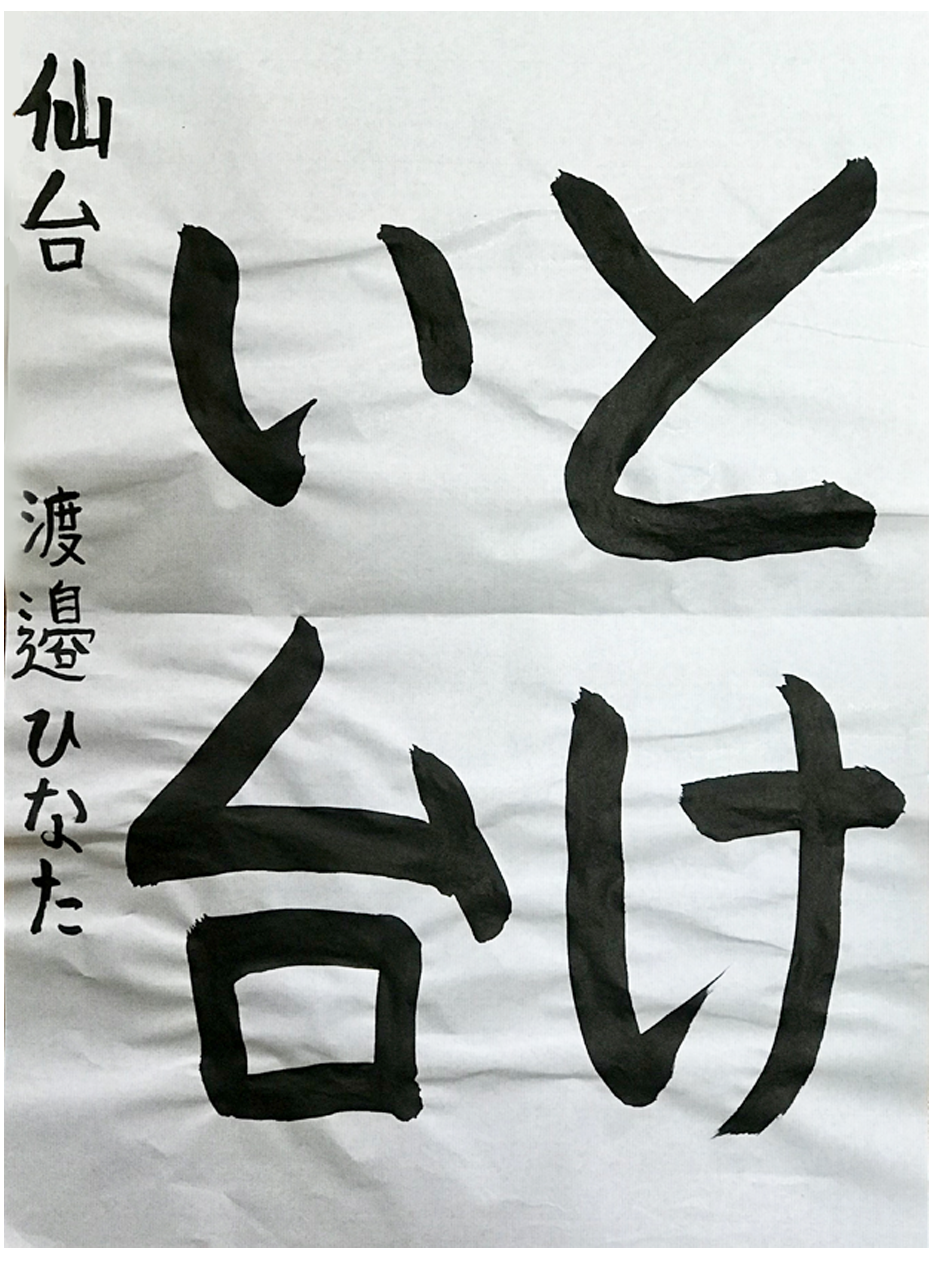 とけ
い台
仙台 渡邉ひなた